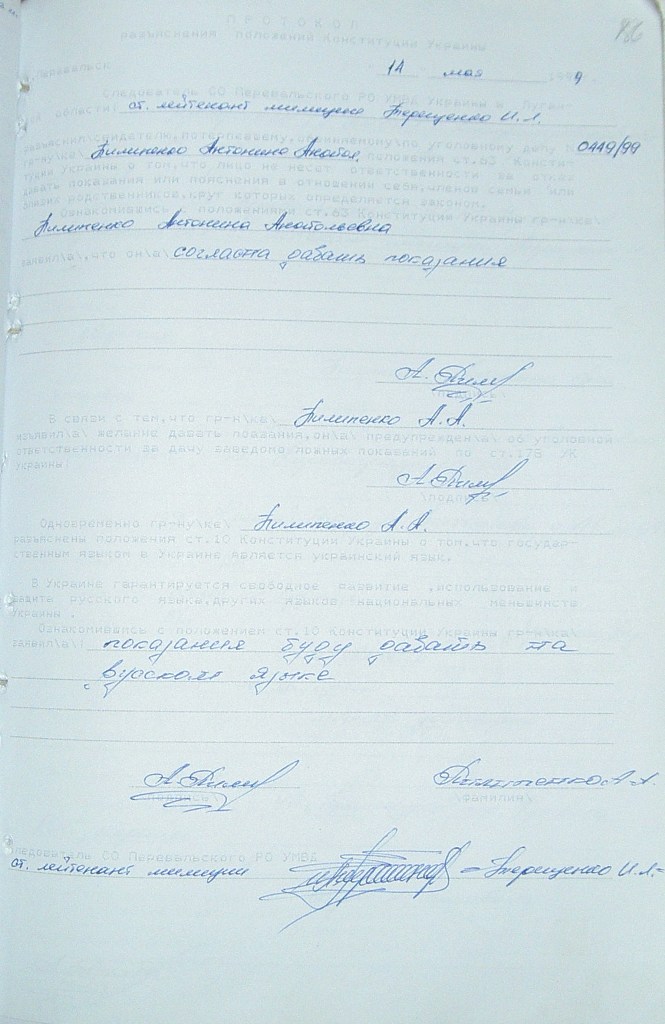 186
ПРОТОКОЛ
разъяснения положений Конституции Украины
г.Перевальск 14 мая 1999.
Следователь СО Перевальского РО УМВД Украины в Луган-
ской области\ ст. лейтенант милиции Терещенко И.Л.
разъяснил\свидетелю,потерпевшему,обвиняемому\по уголовному делу № 0449/99
гр-ну\ке\ Пилипенко Антонина Анатол. положения ст.63 Консти-
туции Украины о том,что лицо не несет ответственности за отказ
давать показания или пояснения в отношении себя,членов семьи или
близких родственников,круг которых определяется законом.
Ознакомившись с положениями ст.63 Конституции Украины гр-н\ка\
Пилипенко Антонина Анатольевна
заявил\а\,что он\а\ согласна давать показания
А. Пилип
\подпись\
В связи с тем,что гр-н\ка\ Пилипенко А.А.
изъявил\а\ желание давать показания,он\а\ предупрежден\а\ об уголовной
ответственности за дачу заведомо ложных показаний по ст.178 УК
Украины.
А.Пилип
\подпись\
Одновременно гр-ну\ке\ Пилипенко А.А.
разъяснены положения ст.10 Конституции Украины о том,что государ-
ственным языком в Украине является украинский язык.
В Украине гарантируется свободное развитие ,использование и
защита русского языка,других языков национальных меньшинств
Украины .
Ознакомившись с положением ст.10 Конституции Украины гр-н\ка\
заявил\а\: показания буду давать на
русском языке
А.Пилип Пилипенко А.А.
\подпись\ \фамилия\
Следователь СО Перевальского РО УМВД
ст. лейтенант милиции Терещенко И.Л.